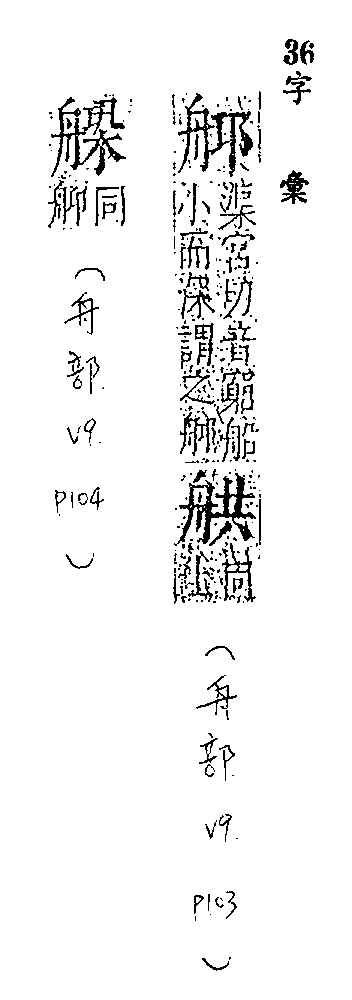 36
字彙
渠宮切音窮船
小而深謂之
舼
同
上
(舟部 V9 P103)
同
(舟部 V9 P104)